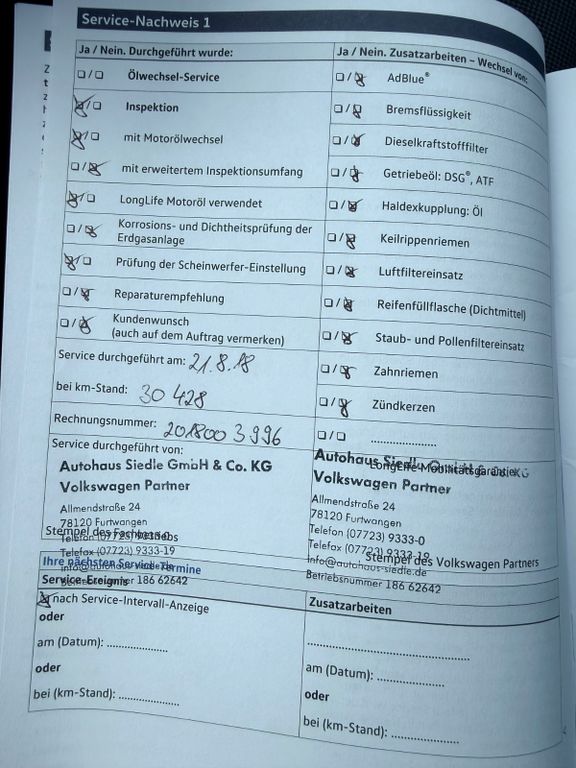 Service-Nachweis 1
Ja / Nein. Durchgeführt wurde:
Ja / Nein. Zusatzarbeiten – Wechsel von:
Ölwechsel-Service
AdBlue®
Inspektion
Bremsflüssigkeit
mit Motorölwechsel
Dieselkraftstofffilter
mit erweitertem Inspektionsumfang
Getriebeöl: DSG®, ATF
LongLife Motoröl verwendet
Haldexkupplung: Öl
Korrosions- und Dichtheitsprüfung der
Erdgasanlage
Keilrippenriemen
Prüfung der Scheinwerfer-Einstellung
Luftfiltereinsatz
Reparaturempfehlung
Reifenfüllflasche (Dichtmittel)
Kundenwunsch
(auch auf dem Auftrag vermerken)
Staub- und Pollenfiltereinsatz
Service durchgeführt am: 21.8.18
Zahnriemen
bei km-Stand: 30 428
Zündkerzen
Rechnungsnummer: 201800 3996
Service durchgeführt von:
Autohaus Siedle GmbH & Co. KG
Volkswagen Partner
Allmendstraße 24
78120 Furtwangen
Telefon (07723) 9333-0
Telefax (07723) 9333-19
info@autohaus-siedle.de
Betriebsnummer 186 62642
Stempel des Fachbetriebs
LongLife Mobilitätsgarantie
Autohaus Siedle GmbH & Co. KG
Volkswagen Partner
Allmendstraße 24
78120 Furtwangen
Telefon (07723) 9333-0
Telefax (07723) 9333-19
info@autohaus-siedle.de
Betriebsnummer 186 62642
Stempel des Volkswagen Partners
Ihre nächsten Service-Termine
Service-Ereignis
Zusatzarbeiten
nach Service-Intervall-Anzeige
oder
am (Datum): ..................
oder
bei (km-Stand): ..................
am (Datum): ..................
oder
bei (km-Stand): ..................